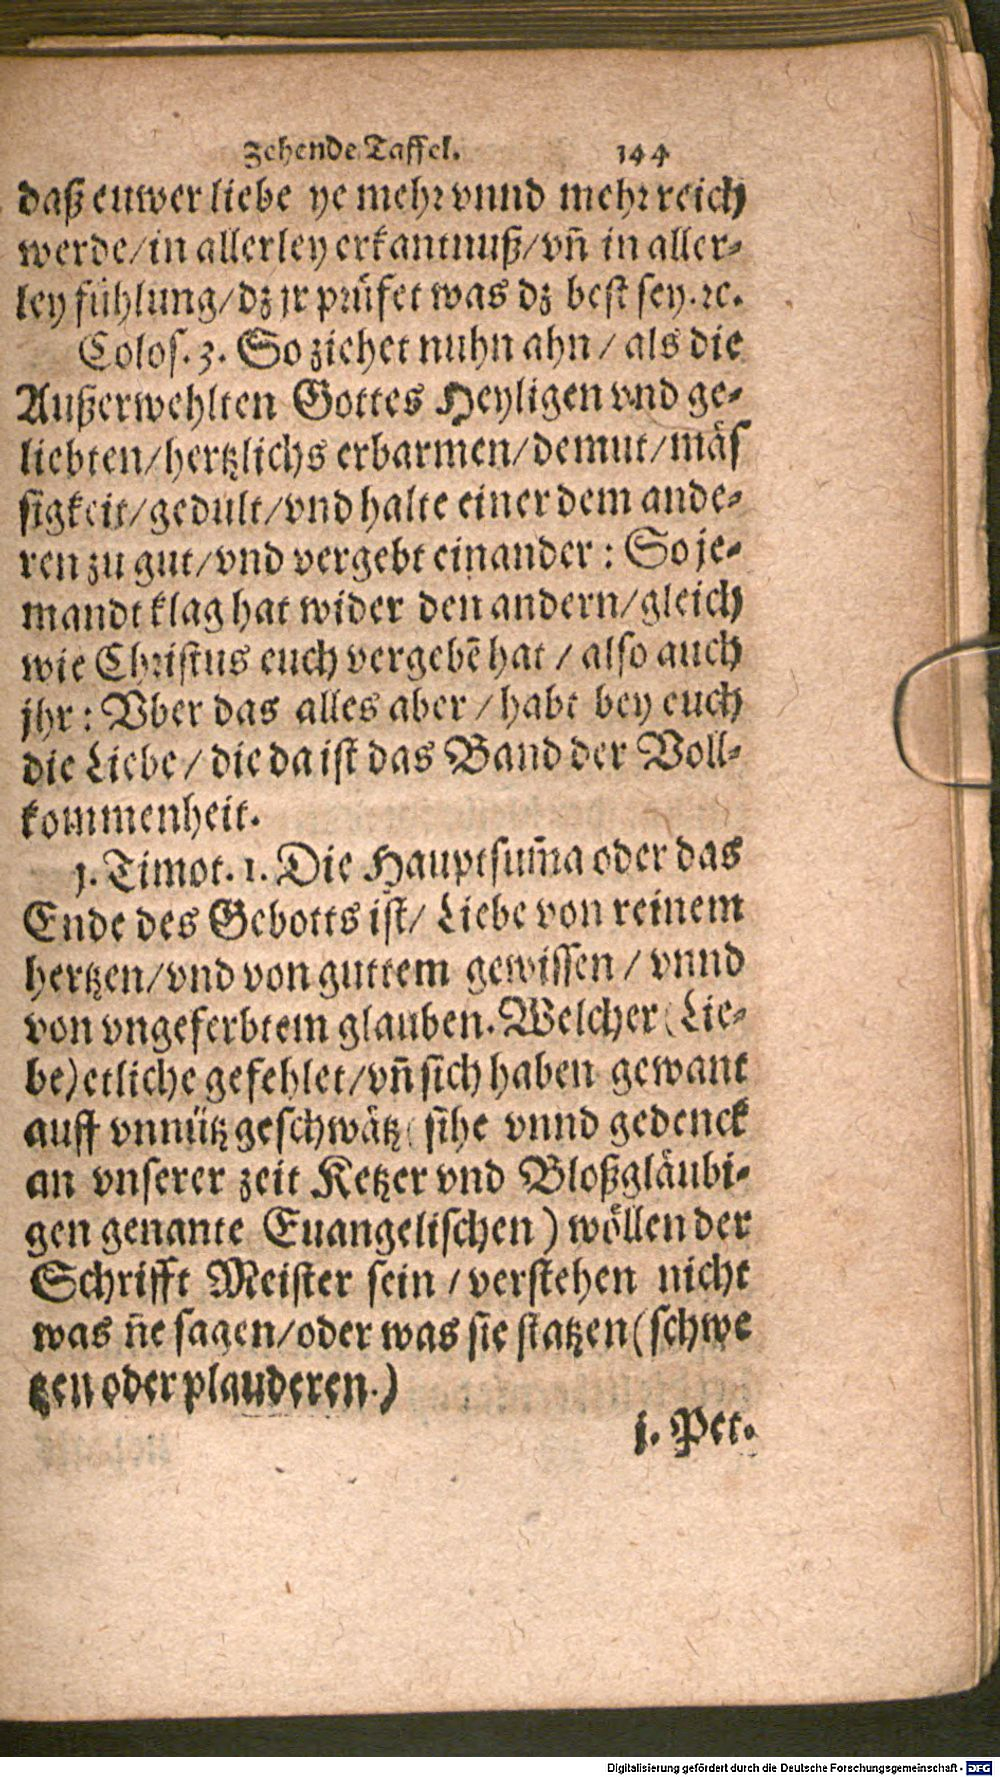 Zehende Taffel. 144
daß euwer liebe ye mehr vnnd mehr reich
werde/in allerley erkantnuß/vñ in aller-
ley fühlung/dz jr prüfet was dz best sey.ꝛc.
Colos. 3. So ziehet nuhn ahn / als die
Außerwehlten Gottes Heyligen vnd ge-
liebten/hertzlichs erbarmen/demut/mäs
sigkeit/gedult/vnd halte einer dem ande-
ren zu gut/vnd vergebt einander : So je-
mandt klag hat wider den andern/gleich
wie Christus euch vergebẽ hat / also auch
jhr : Vber das alles aber / habt bey euch
die Liebe / die da ist das Band der Voll-
kommenheit.
j. Timot. 1. Die Hauptsum̃a oder das
Ende des Gebotts ist/ Liebe von reinem
hertzen/vnd von guttem gewissen / vnnd
von vngeferbtem glauben. Welcher (Lie-
be) etliche gefehlet/vñ sich haben gewant
auff vnnütz geschwätz ( sihe vnnd gedenck
an vnserer zeit Ketzer vnd Bloßgläubi-
gen genante Euangelischen ) wöllen der
Schrifft Meister sein / verstehen nicht
was sie sagen/oder was sie statzen (schwe
tzen oder plauderen.)
j. Pet.
Digitalisierung gefördert durch die Deutsche Forschungsgemeinschaft - DFG